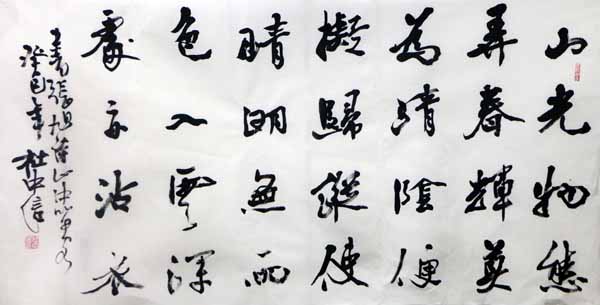 山光物態
弄春輝莫
為陰便
擬歸縱使
晴明無雨
色入雲深
處亦沾衣
書張旭山中留客
癸巳年杜中信